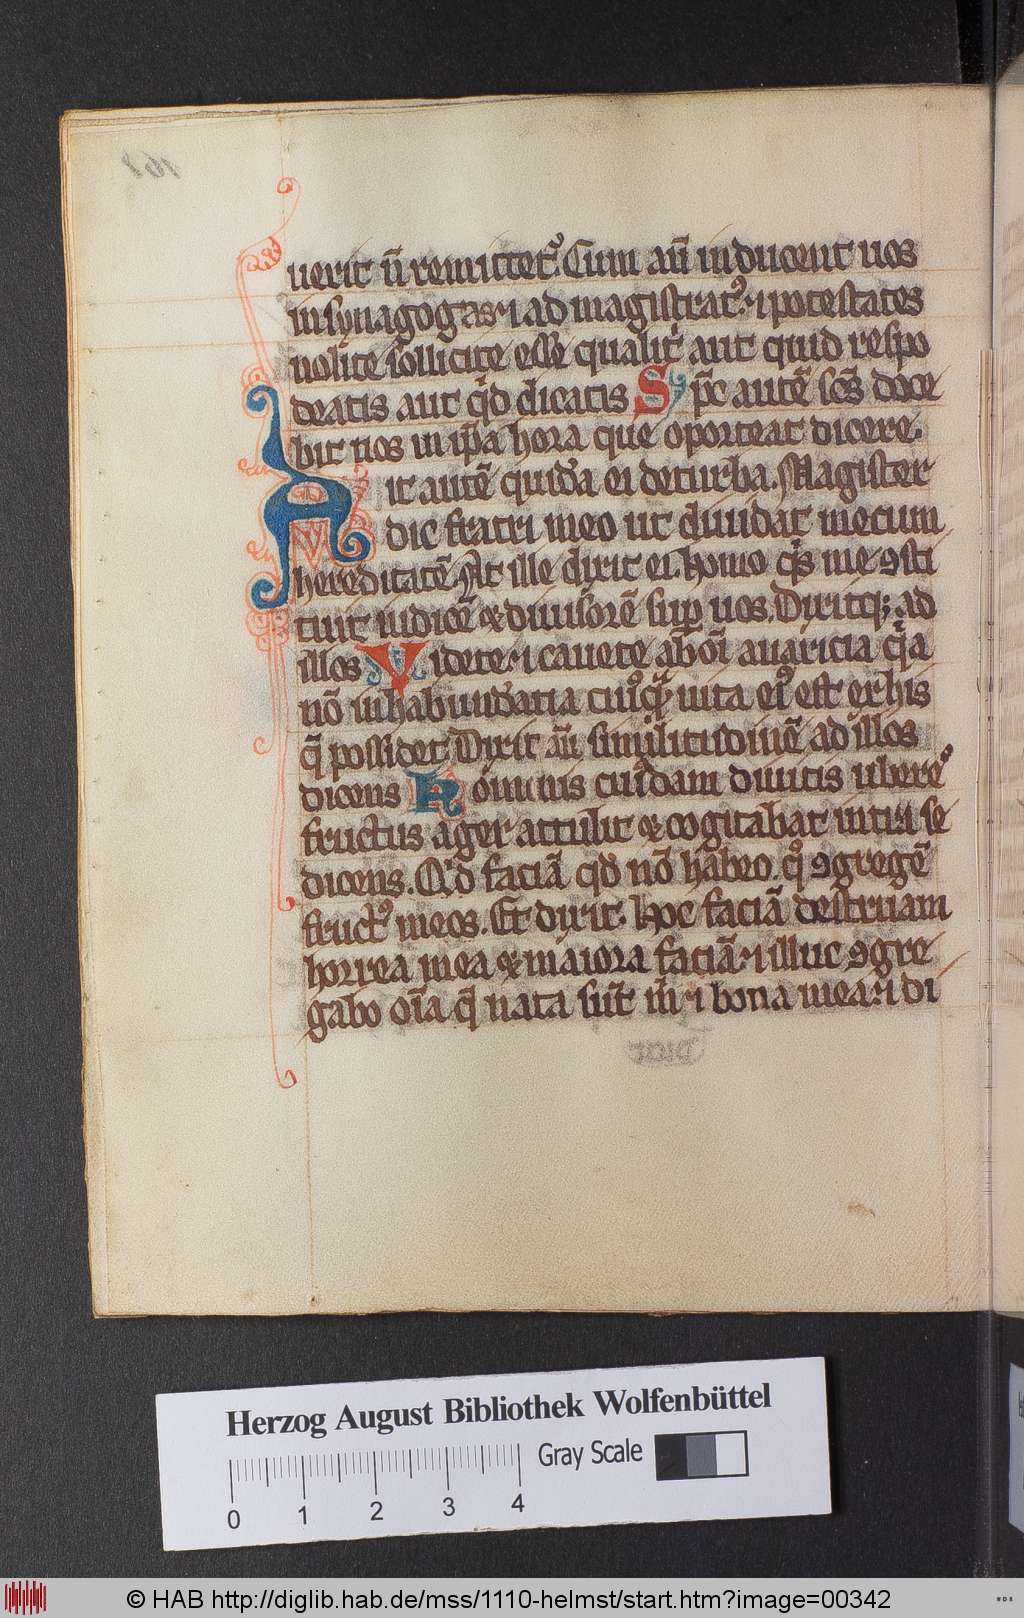 uerit n̄ remittet᷒. Cum aū inducent uos
in synagogas ⁊ ad magistrat᷒ ⁊ potestates
nolite solliciti esse qualit̄ aut quid respo
deatis aut qͥd dicatis Sp̄c autē sc̄s doce
bit uos in ip̄a hora que oporteat dicere.
Ait autē quidā ei de turba. Magister
dic fratri meo ut diuidat mecum
hereditatē. At ille dixit ei. homo qͥs me ꝯsti
tuit iudicē & diuisorē sup̱ uos. Dixitq; ad
illos Videte ⁊ cauete ab oī auaricia qͥa
nō in habundātia cuiꝰqͣ uita eiꝰ est ex his
q̄ possidet. Dixit aū similitudinē ad illos
dicens Hominis cuiꝰdam diuitis ubere᷒
fructus ager attulit & cogitabat intra se
dicens. Qͥd faciā qd̄ nō habeo. qͦ ꝯgregē
fructꝰ meos. Et dixit. Hoc faciā destruam
horrea mea & maiora faciā ⁊ illuc ꝯgre
gabo oīa q̄ nata sūt m̄ ⁊ bona mea ⁊ di
Herzog August Bibliothek Wolfenbüttel
Gray Scale
0 1 2 3 4
© HAB http://diglib.hab.de/mss/1110-helmst/start.htm?image=00342